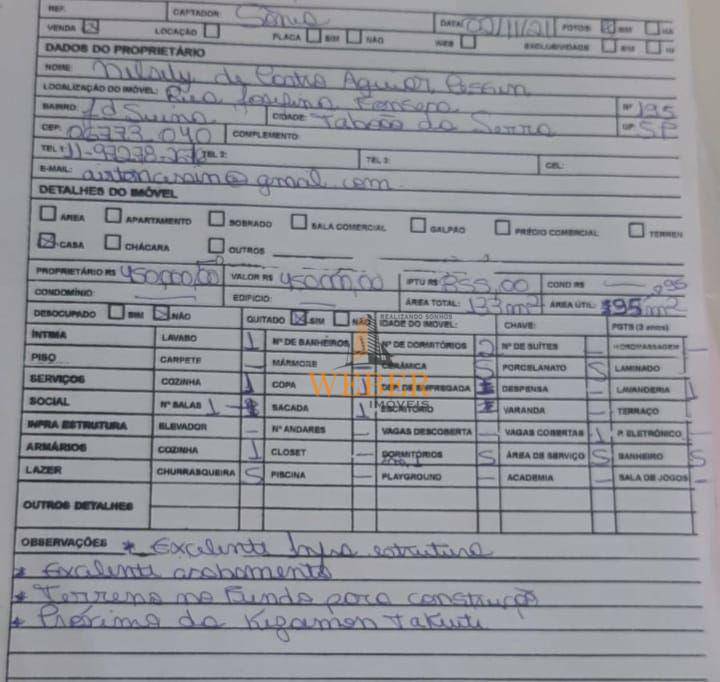 REF. CAPTADOR: Sônia DATA: 02/11/21 FOTOS: SIM
VENDA LOCAÇÃO PLACA SIM NÃO WEB EXCLUSIVIDADE SIM
DADOS DO PROPRIETÁRIO
NOME: de Castro Aguiar
LOCALIZAÇÃO DO IMÓVEL: Rua Josefina Nº 195
BAIRRO: Jd Suina CIDADE: Taboão da Serra UF: SP
CEP: 06773.040 COMPLEMENTO:
TEL 1: 11-97278- TEL 2: TEL 3: CEL:
E-MAIL: @gmail.com.
DETALHES DO IMÓVEL
ÁREA APARTAMENTO SOBRADO SALA COMERCIAL GALPÃO PRÉDIO COMERCIAL TERREN
CASA CHÁCARA OUTROS
PROPRIETÁRIO R$ 450,000,00 VALOR R$ 45000,00 IPTU R$ 855,00 COND R$
CONDOMÍNIO: EDIFICIO: ÁREA TOTAL: 133m² ÁREA ÚTIL: 95m²
DESOCUPADO SIM NÃO QUITADO SIM NÃO IDADE DO IMÓVEL: CHAVE: PGTS (3 anos)
REALIZANDO SONHOS
WEBER
IMÓVEIS
ÍNTIMA LAVABO 1 Nº DE BANHEIROS 1 Nº DE DORMITÓRIOS 2 Nº DE SUÍTES — HIDROMASSAGEM —
PISO CARPETE — MÁRMORE — CERÂMICA S PORCELANATO S LAMINADO
SERVIÇOS COZINHA 1 COPA 1 DEP. DE EMPREGADA DESPENSA — LAVANDERIA 1
SOCIAL Nº SALAS 1 SACADA 1 ESCRITÓRIO VARANDA — TERRAÇO
INFRA ESTRUTURA ELEVADOR — Nº ANDARES — VAGAS DESCOBERTA — VAGAS COBERTAS 1 P. ELETRÔNICO —
ARMÁRIOS COZINHA 1 CLOSET — DORMITÓRIOS S ÁREA DE SERVIÇO S BANHEIRO S
LAZER CHURRASQUEIRA S PISCINA — PLAYGROUND — ACADEMIA — SALA DE JOGOS —
OUTROS DETALHES
OBSERVAÇÕES * Excelente Infra estrutura
* Excelente acabamento
* Terreno no Fundo para construção
* Próximo do Kizamon Takeuti